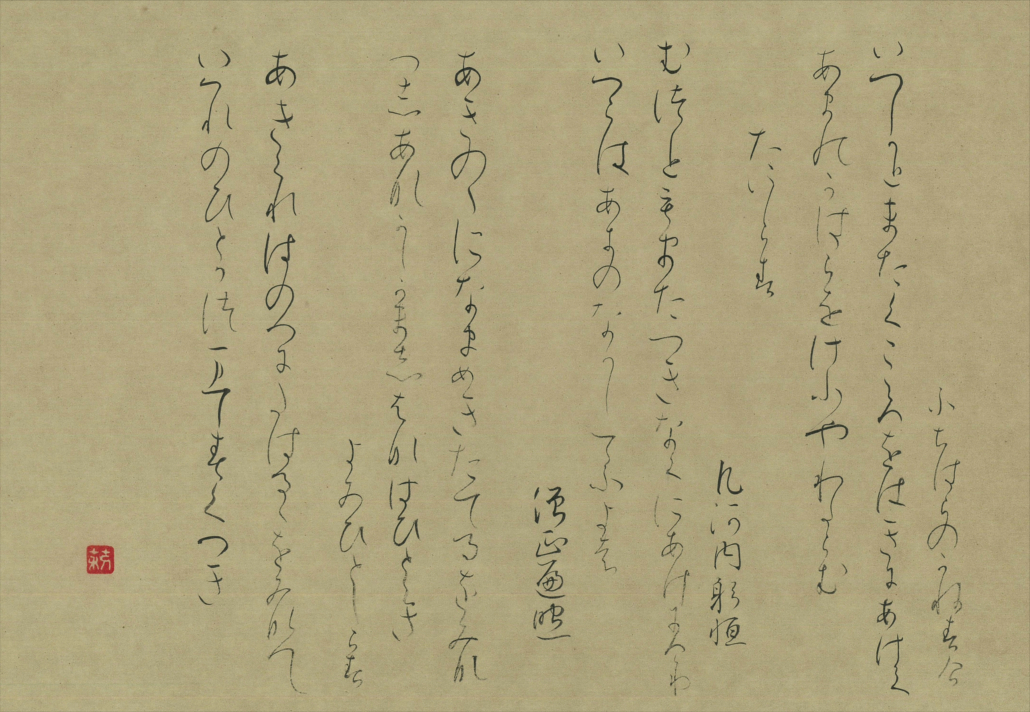 ふちはらのかねすけ
いつしかとまたくこころをはきにあけて
あまのかはらをけふやわたらむ
たいしらす
凡河内躬恒
むつこともまたつきなくにあけぬめり
いつらはあきのなかしてふよは
僧正遍昭
あきののになまめきたてるをみな
へしあなかしかましはなもひととき
よみひとしらす
あきくれはのへにたはるるをみなへし
いつれのひとかつまてすくへき